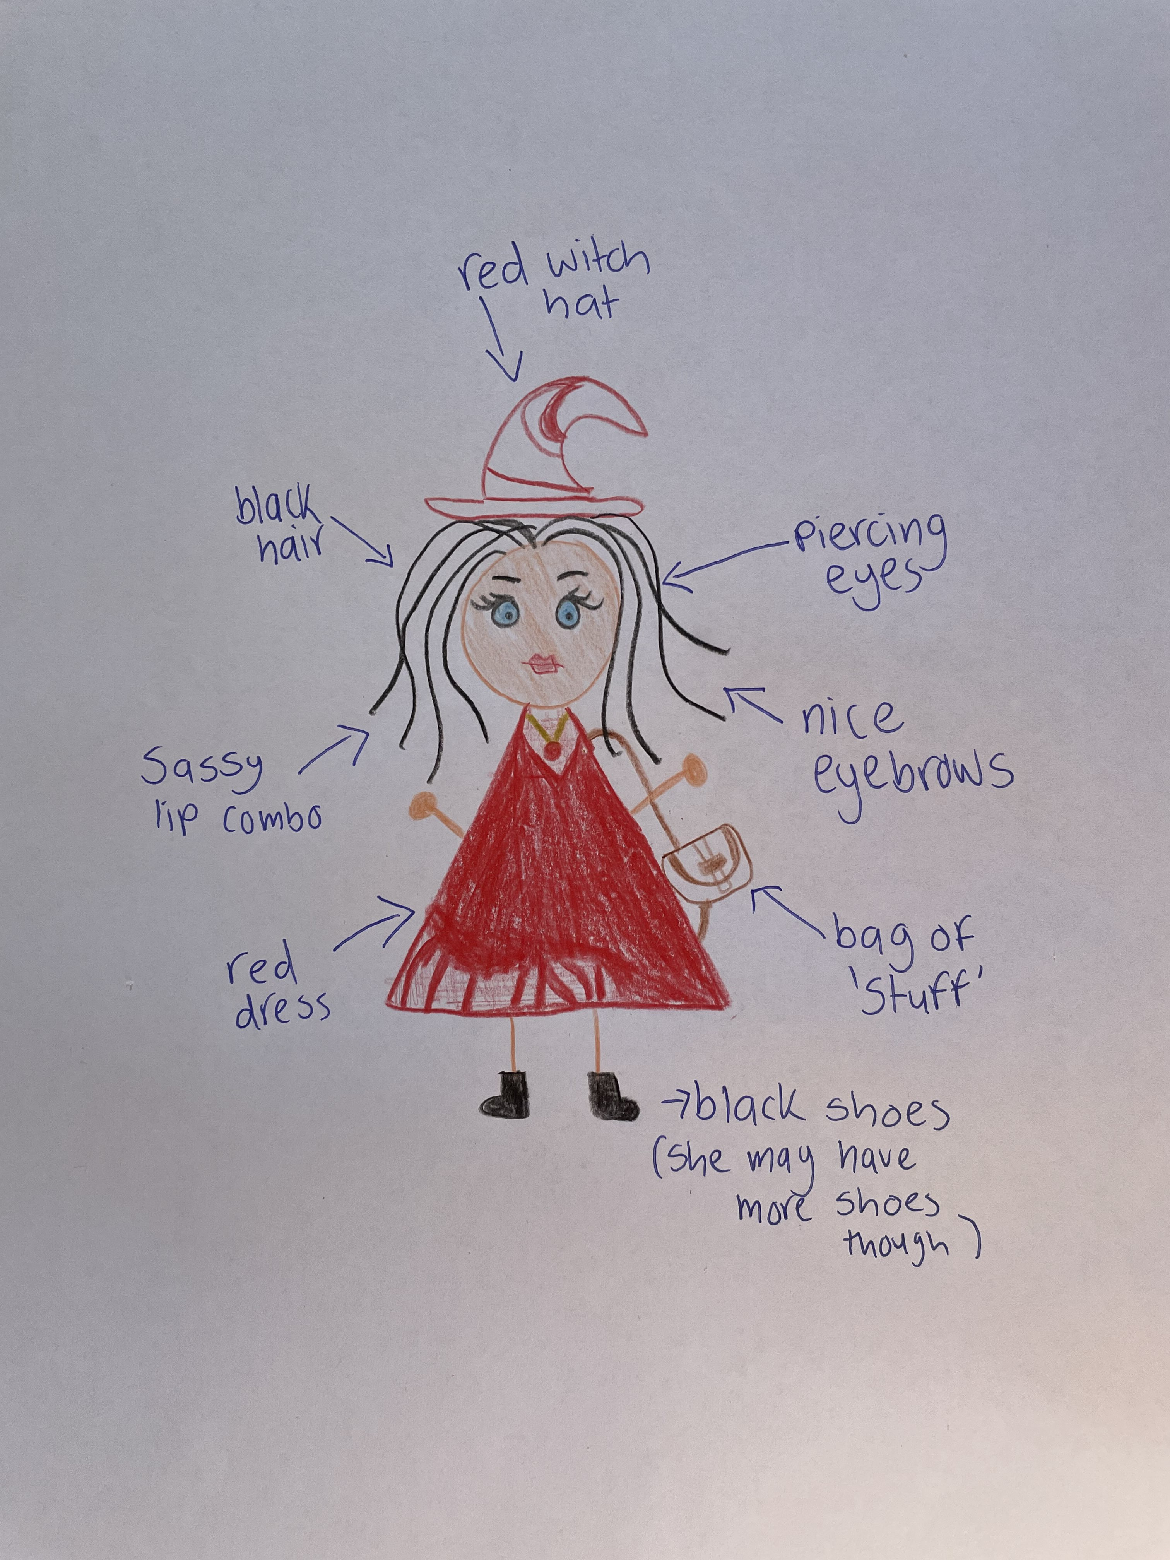 red witch
hat
black
hair
piercing
eyes
nice
eyebrows
Sassy
lip combo
bag of
'stuff'
red
dress
→black shoes
(she may have
more shoes
though)